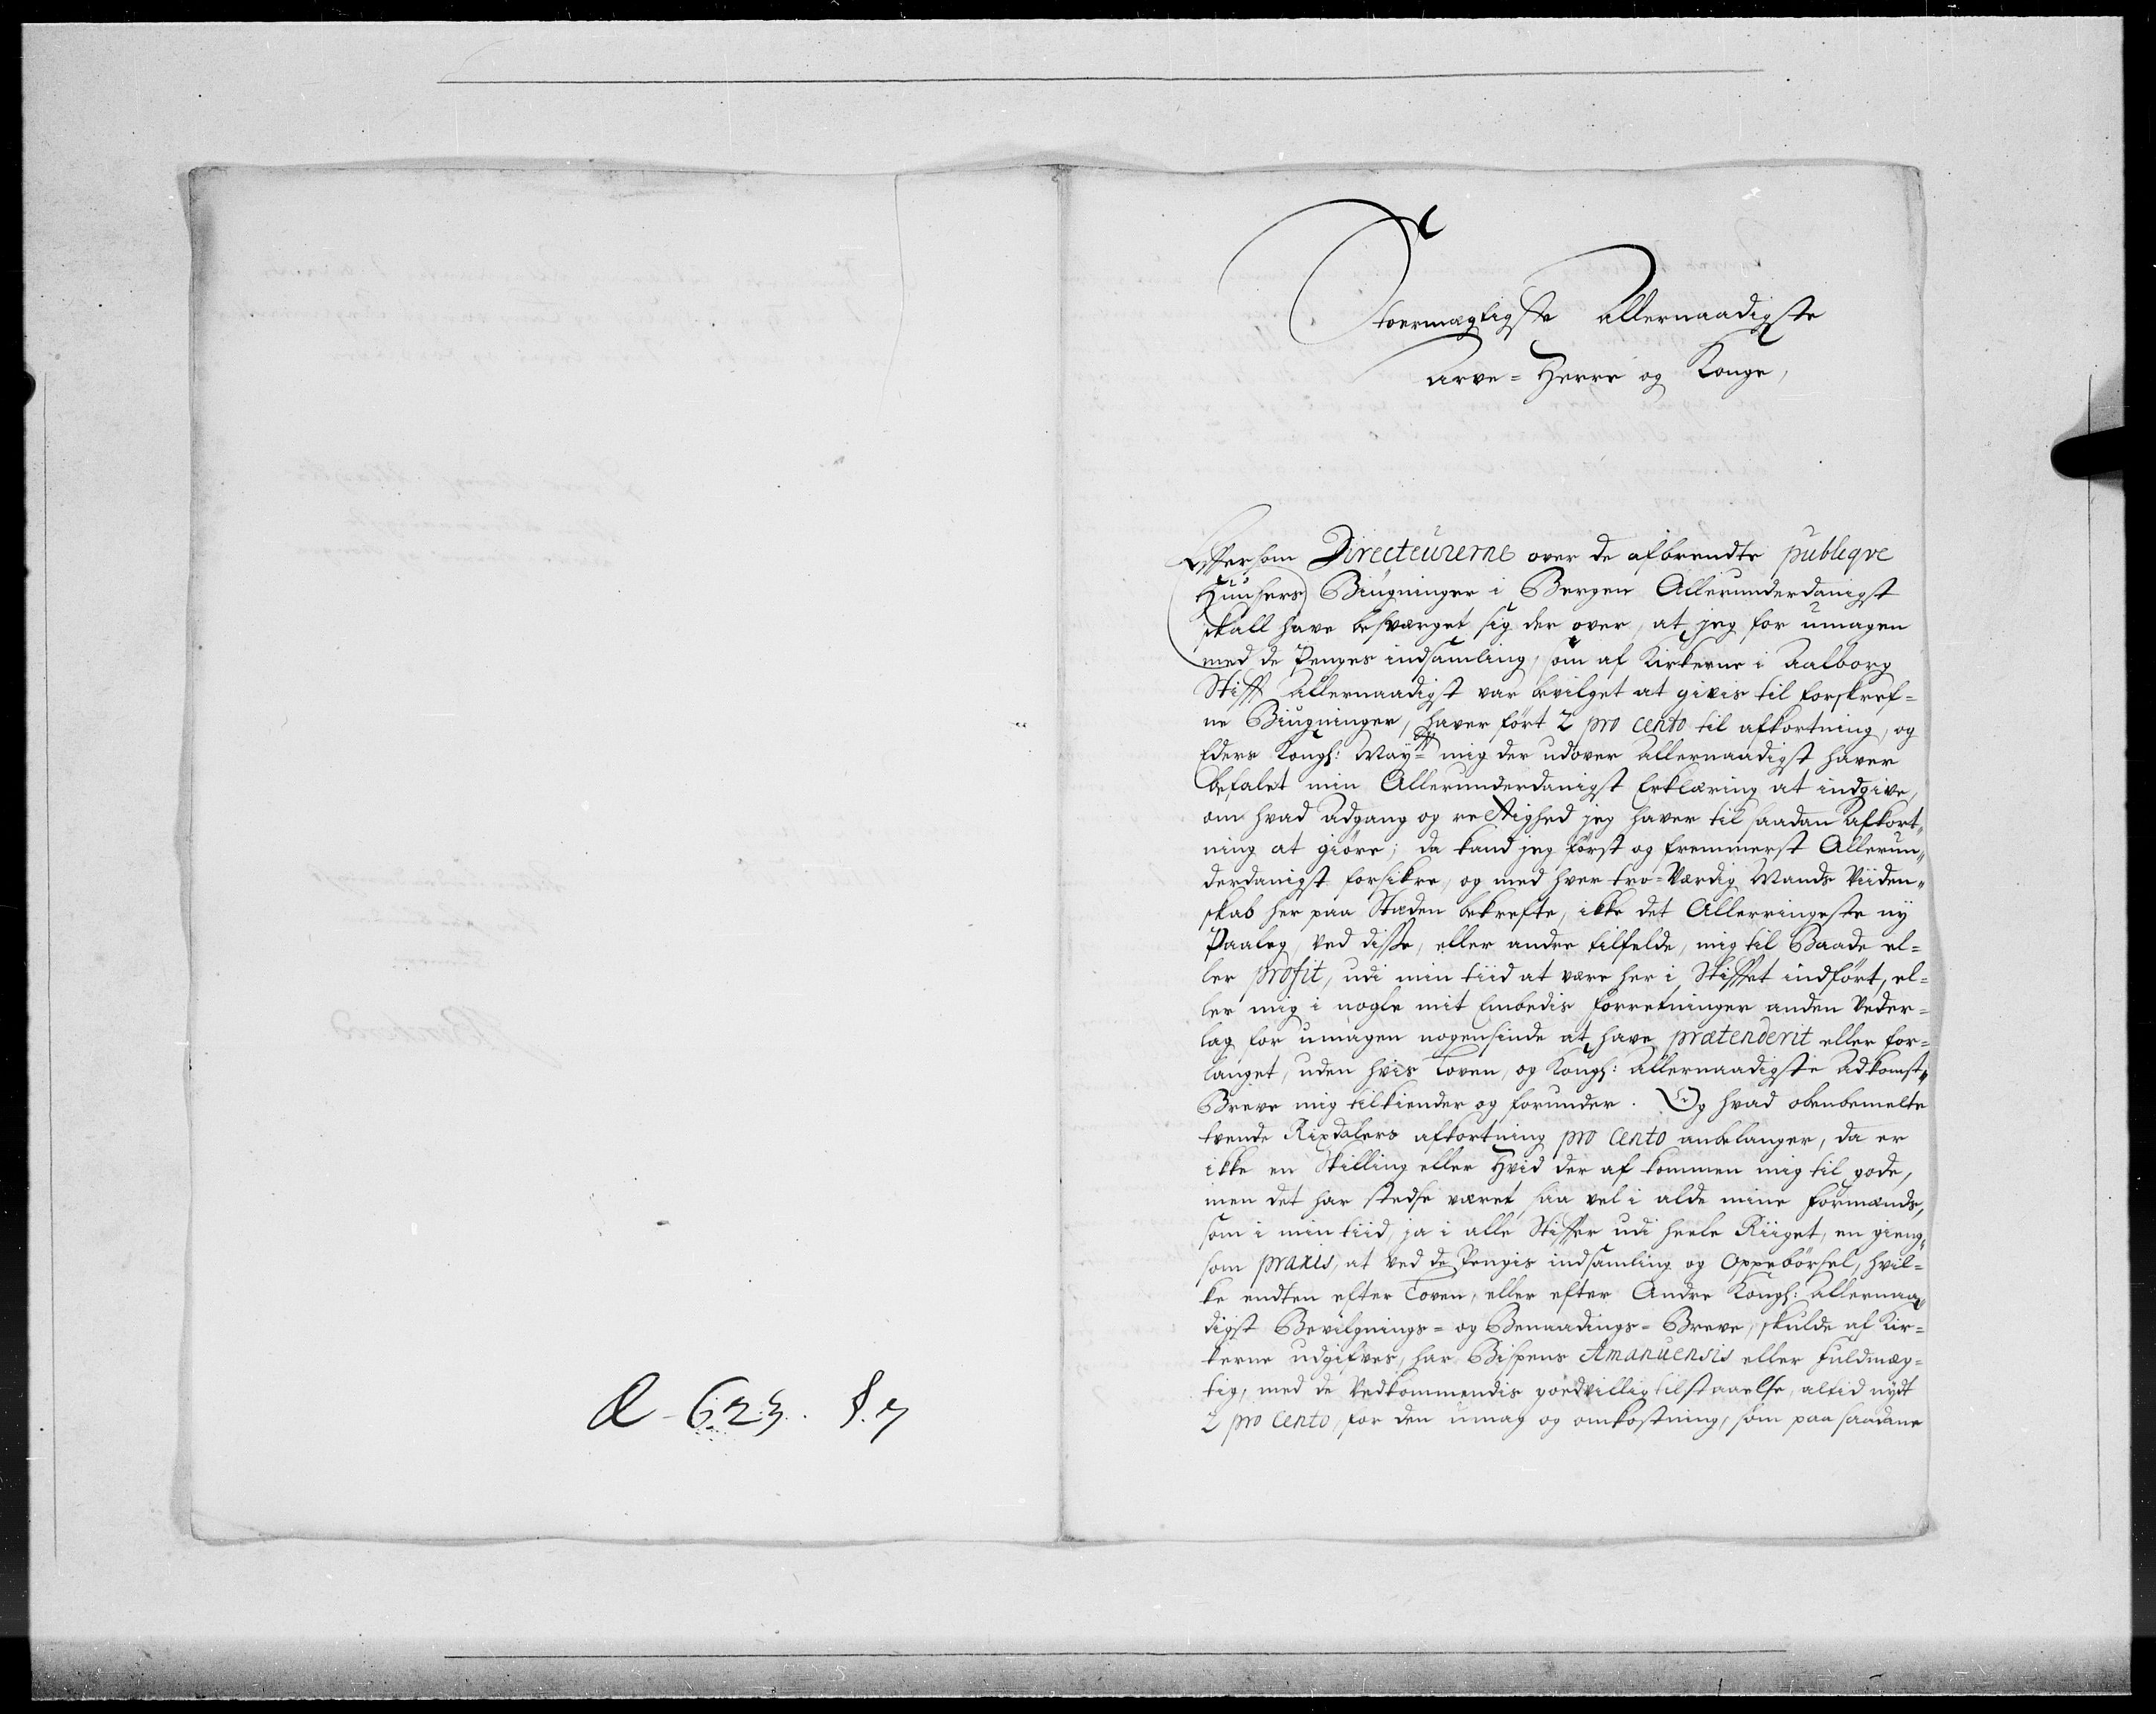 Stoermægtigste Allernaadigste
Arve-Herre og Konge,
Eftersom Directeurerne over de afbrendte publiqve
Huuses Biugninger i Bergen Allerunderdanigst
skall have besværget sig der over, at jeg for umagen
med de Penges indsamling, som af Kirkerne i Aalborg
Stift Allernaadigst var bevilget at givis til forskref=
ne Biugninger, haver ført 2 pro cento til afkortning, og
Eders Kongl: May:tt mig der udover allernaadigst haver
befalet min Allerunderdanigst Erklæring at indgive,
om hvad Adgang og rettighed jeg haver til saadan Afkort„
ning at giöre; da kand jeg först og fremmerst Allerun„
derdanigst forsikre, og med hver tro-Værdig Mands Viiden„
skab her paa Stæden bekrefte, ikke det Allerringeste ny
Paaleg, ved disse, eller andre tilfelde, mig til Baade el=
ler profit, udi min tiid at være her i Stiftet indført, el=
ler mig i nogle mit Embedis forretninger anden Veder=
lag for umagen nogensinde at have prætenderit eller for=
langet, uden hvis Loven, og Kongl: Allernaadigste Adkomst„
Breve mig tilkiender og forunder. Og hvad obenbemelte
tvende Rixdalers afkortning pro Cento anbelanger, da er
ikke en Skilling eller Hvid der af kommen mig til gode,
men det har stedse været saa vel i alde mine formænds,
som i min tiid, ja i alle Stifter udi heele Riiget, en gieng„
som praxis, at ved de Pengis indsamling og Oppebörsel, hvil=
ke endten efter Loven, eller efter Andre Kongl: Allernaa„
digst Bevilgnings= og Benaadings=Breve, skulde af Kir=
kerne udgifves, har Bispens Amanuensis eller fuldmæg=
tig, med de Vedkommendis goedvillig tilstaaelse, altid nydt
2 pro Cento, for den umag og omkostning, som paa saadane
623.